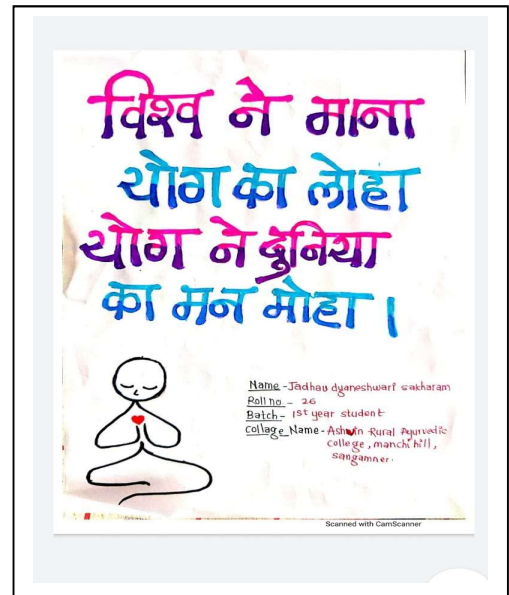 विश्व ने माना
योग का लोहा
योग ने दुनिया
का मन मोहा।
Name - Jadhav dyaneshwari sakharam
Roll no - 26
Batch - 1st year student
collage Name - Ashvin Rural Ayurvedic
college, manchi hill,
sangamner.
Scanned with CamScanner